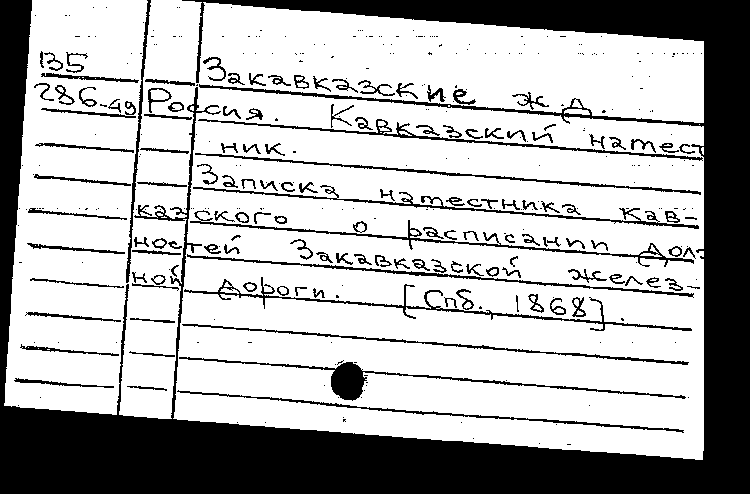 В5 Закавказские ж.д.
286-49 Россия. Кавказский намест
ник.
Записка наместника кав-
казского о расписании дол
ностей Закавказской желез-
ной дороги. [Спб., 1868].